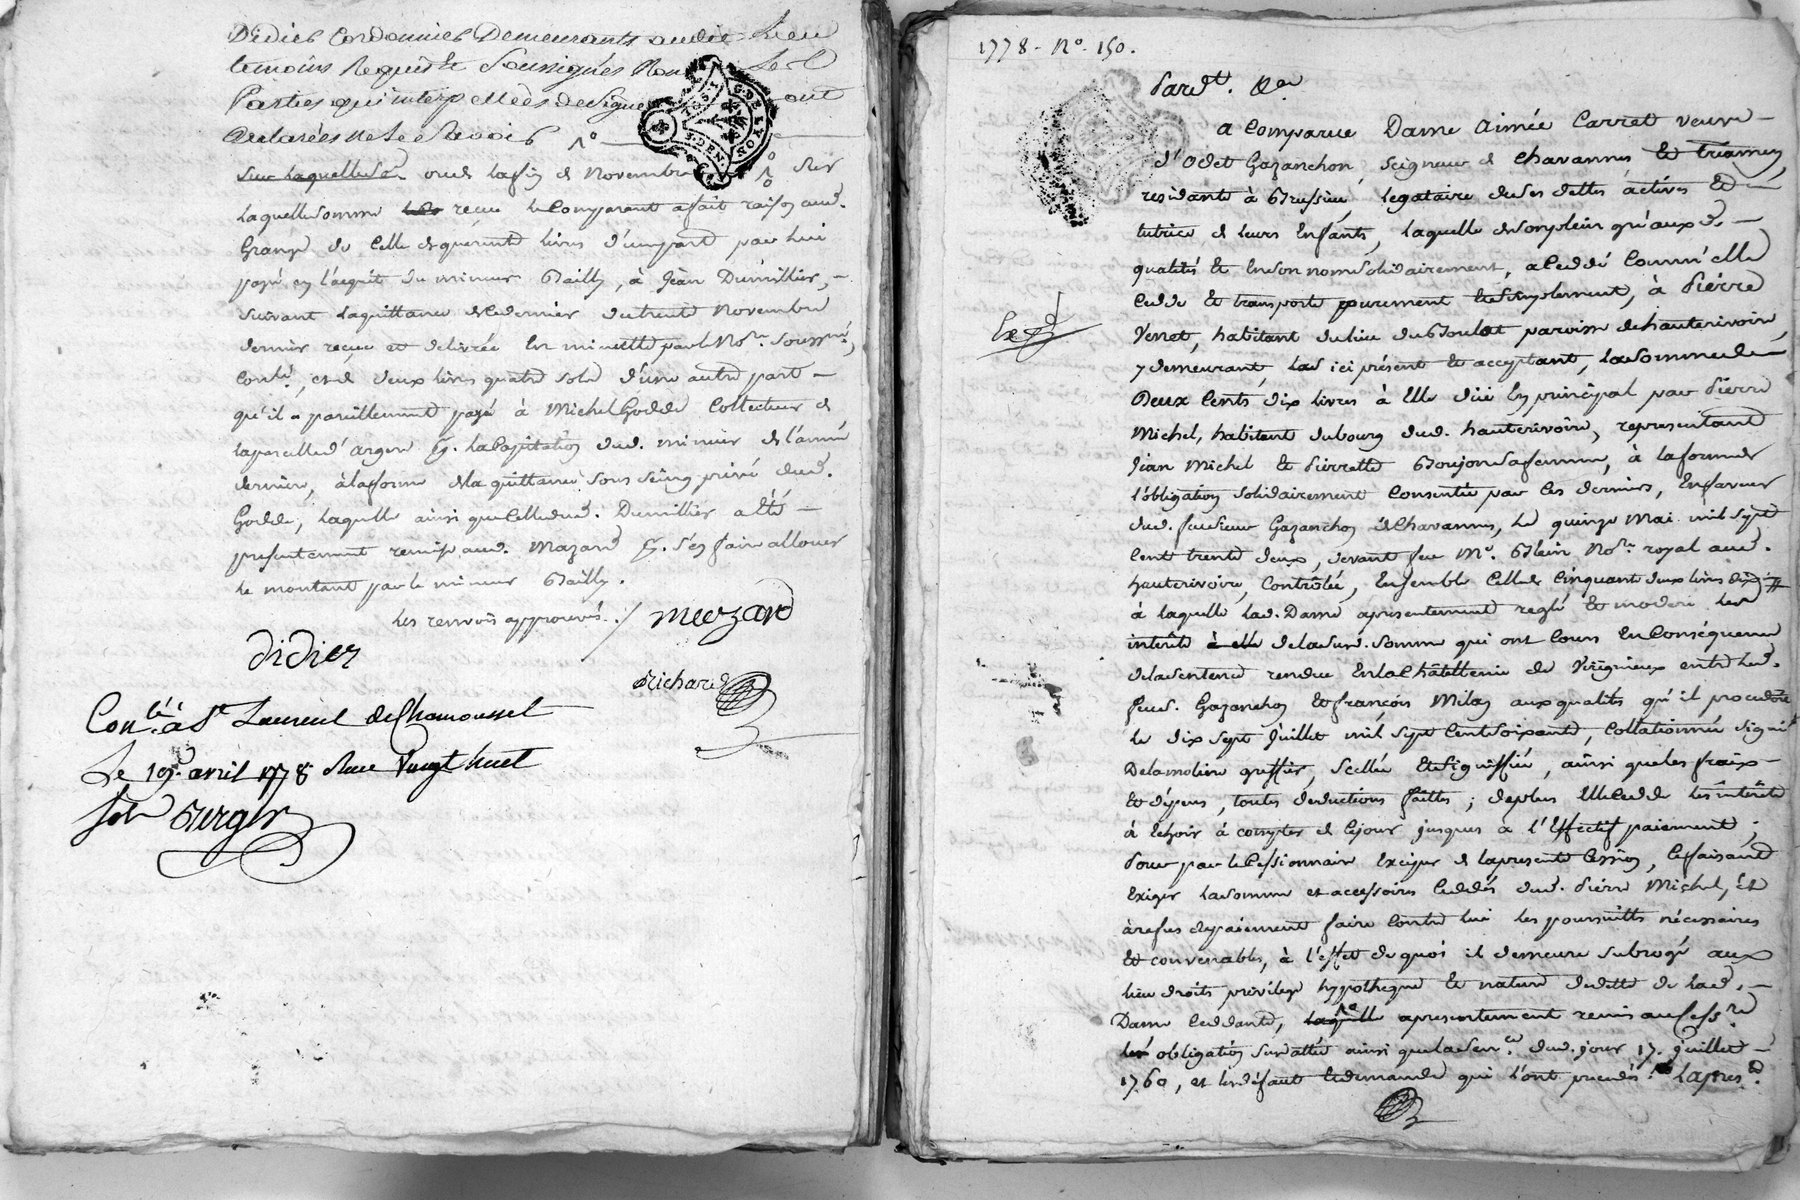 Didier Cordonnier Demeurants audit Lieu
temoins Requis et Soussignés Non Les
Parties qui interpellées de Signer ont
declarées ne le Scavoir
G. DE LYON
DEN.
sur laquelle ou de la fin de Novembre der
laquelle somme recue le Comparant a fait raison aud.
Grange de celle de quarente livres d'une part par lui
payé en l'acquit du mineur Bailly, à Jean Dumillier,
suivant la quittance de ce dernier du trente Novembre
dernier reçue et delivrée En minutte par le No.re soussigné,
Contlé, et de deux livres quatre sols d'une autre part
qu'il a pareillement payé à Michel Godde Collecteur de
la parcelle d'Argen pr. la Capitation dud. mineur de l'année
derniere, à la forme de la quittance sous seing privé dud.
Godde, laquelle ainsi que celle dud. Dumillier a été
presentement remise aud. Mazard pr. s'en faire allouer
le montant par le mineur Bailly.
les renvois approuvés. / mezard
didier
Richard
Con.lé à St. Laurent de Chamousset
Le 19. avril 1778 Reçu vingt huit
sols Berger
1778 - No. 150.
Pard.t Nre
a Comparue Dame Aimée Carret veuve
d'Odet Gazanchon, seigneur de Chavannes et
residante à Brussieu, legataire de ses dettes actives Et
tutrice de leurs Enfants, laquelle de son plein gré auxd.
qualités Et En son nom solidairement, a Ceddé Comm'elle
Cedde Et transporte purement Et simplement, à Pierre
Exp.d
Venet, habitant du lieu du Boulat paroisse de hauterivoire,
y demeurant, lad ici présent Et acceptant, la somme de
Deux Cents dix livres à Elle düe En principal par Pierre
Michel, habitant du bourg dud. hauterivoire, representant
Jean Michel Et Pierrette Boujon sa femme, à la forme de
l'obligation solidairement Consentie par Ces derniers, En faveur
dud. feu sieur Gazanchon de Chavannes, le quinze Mai mil sept
Cent trente deux, devant feu Me. Blein No.re royal aud.
hauterivoire, Contrôlée, Ensemble Celle de Cinquante deux livres dix s
à laquelle lad. Dame a presentement reglé Et moderé les
intérêts à elle de la sud. somme qui ont Cours En Conséquence
de la sentence rendue En la Châttellenie de Virigneux entre led.
feu s. Gazanchon Et françois Milan aux qualités qu'il procedoit
le dix sept Juillet mil sept Cent soixante, Collationnée signé
Delamoliere greffier, scellée Et signiffiée, ainsi que les fraix
Et dépens, toutes deductions faites; de plus Elle Cedde les intérêts
à Echoir à compter de Ce jour jusques à l'Effectif paiement;
Pour par le Cessionnaire Exciper de la presente Cession, Ce faisant
Exiger la somme et accessoires Ceddés dud. Pierre Michel, Et
à refus de paiement faire Contre lui les poursuittes nécessaires
Et convenables, à l'effet de quoi il demeure subrogé aux
lieu droits privilege hypotheque Et nature de dette de lad.
Dame Ceddante, laquelle a presentement remis au Cess.re
les obligation susdattée ainsi que la sen.ce dud. jour 17. juillet
1760, et les défaut Et demande qui l'ont precedés. Lapres.te